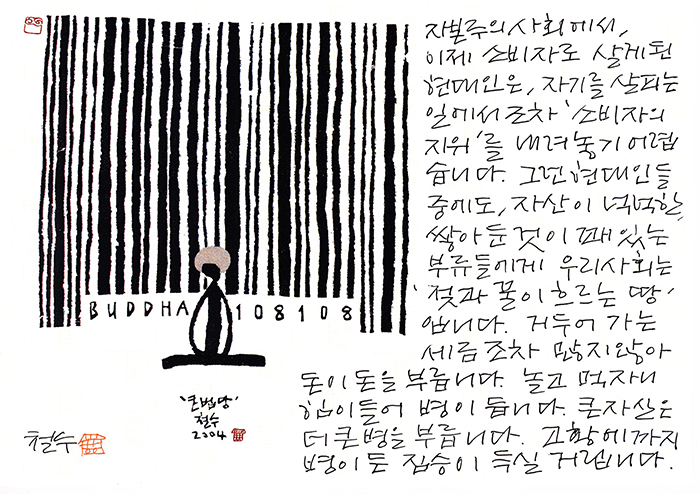 자본주의 사회에서,
이제 소비자로 살게 된
현대인은, 자기를 살피는
일에서 조차 '소비자의
지위'를 내려놓기 어렵
습니다. 그런 현대인들
중에도, 자산이 넉넉한,
쌓아둔 것이 꽤 있는
부류들에게 우리사회는
'젖과 꿀이 흐르는 땅'
입니다. 거두어 가는
세금 조차 많지 않아
돈이 돈을 부릅니다. 놀고 먹자니
힘이 들어 병이 듭니다. 큰 자산은
더 큰 병을 부릅니다. 고황에까지
병이 든 짐승이 득실 거립니다.
BUDDHA 108108
'큰법당'
철수
2004
철수